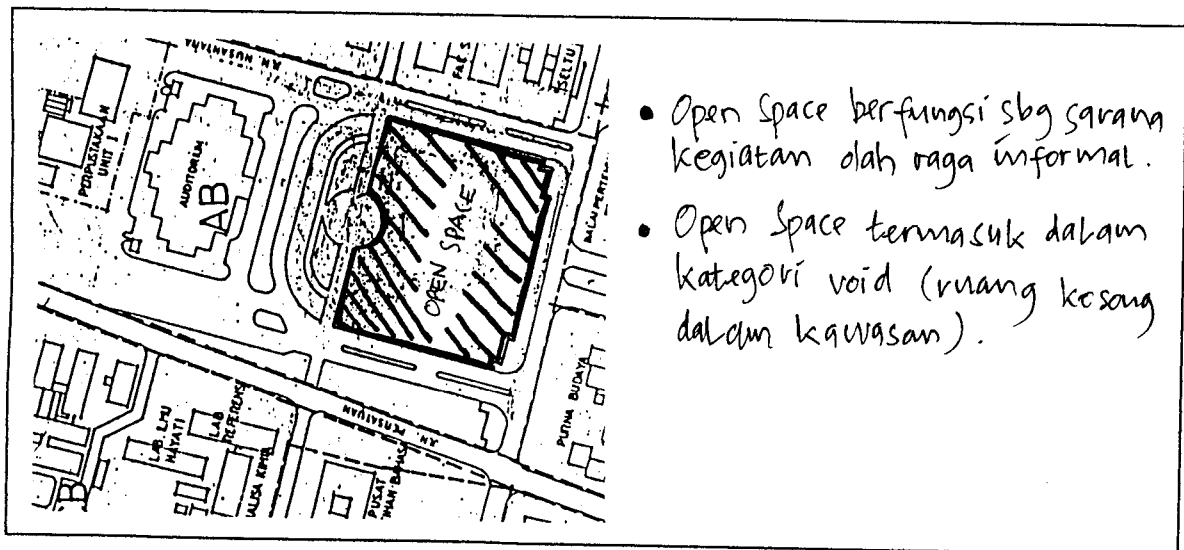 JLN. NUSANTARA
PERPUSTAKAAN
UNIT I
AUDITORIUM
AB
OPEN SPACE
PUTNA BUDAYA
JLN. PERSATUAN
LAB. ILMU
HAYATI
LAB
PUSAT
B
• Open Space berfungsi sbg sarana
kegiatan olah raga informal.
• Open Space termasuk dalam
kategori void (ruang kosong
dalam kawasan).